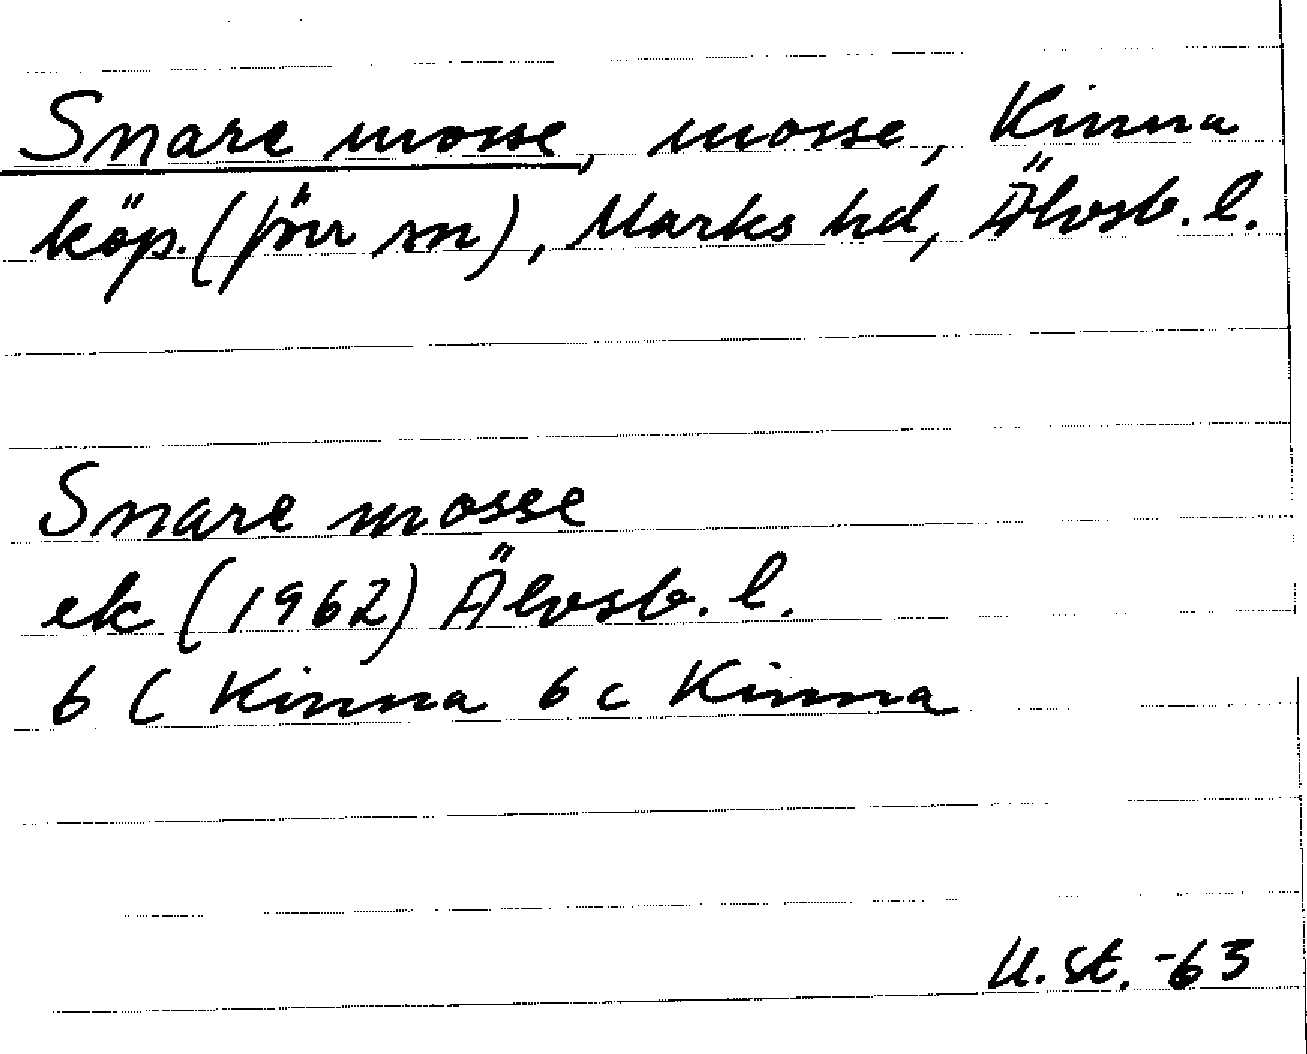 Snare mosse, mosse, Kinna
köp. (förr sn), Marks hd, Älvsb. l.
Snare mosse
ek (1962) Älvsb. l.
6 C Kinna 6 c Kinna
U. St. -63